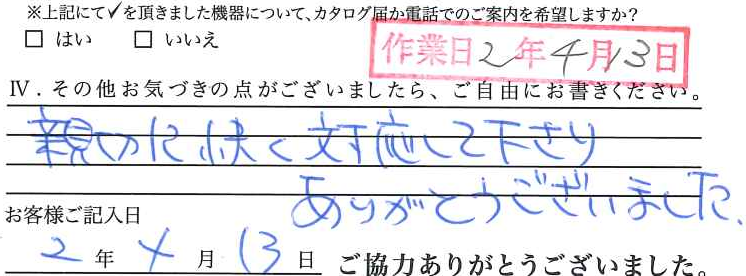 ※上記にて✓を頂きました機器について、カタログ届か電話でのご案内を希望しますか?
□ はい □ いいえ
作業日2年4月13日
Ⅳ.その他お気づきの点がございましたら、ご自由にお書きください。
親切に快く対応して下さり
ありがとうございました。
お客様ご記入日
2年4月13日 ご協力ありがとうございました。